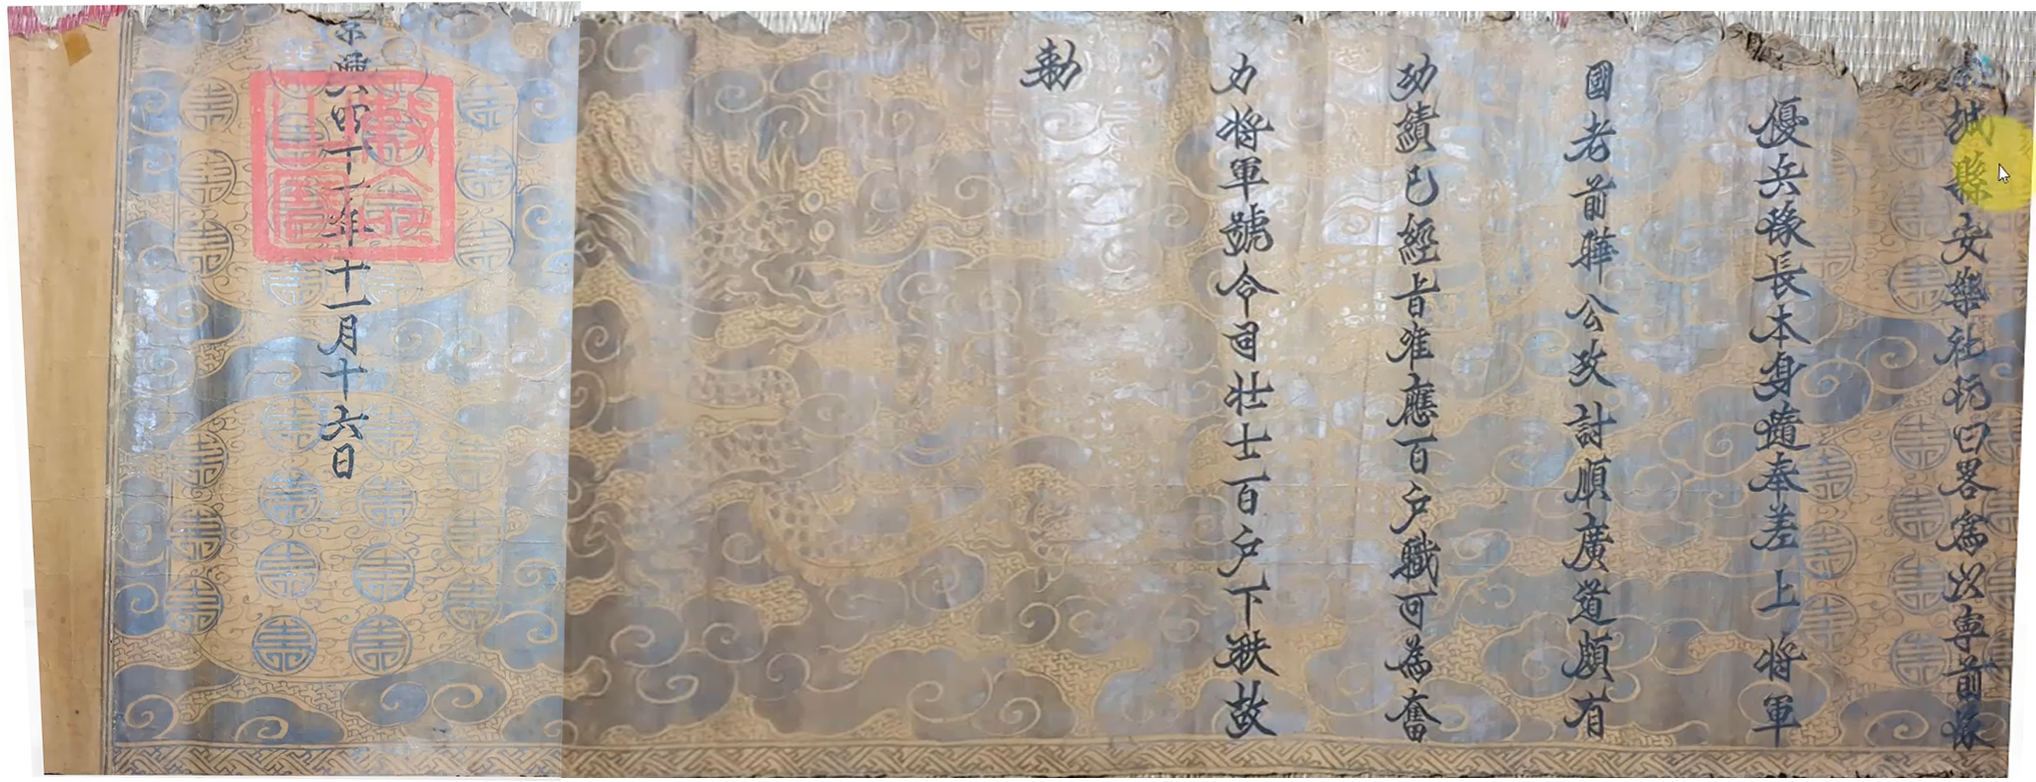 城縣安樂社 曰畧為以專前隊
優兵豫長本身隨奉差上將軍
國老前驊公攻討順廣道頗有
功績已經旨准應百户職可為奮
力將軍號令司壯士百户下秩故
勅
景興四十一年十一月十六日
敕命之寶